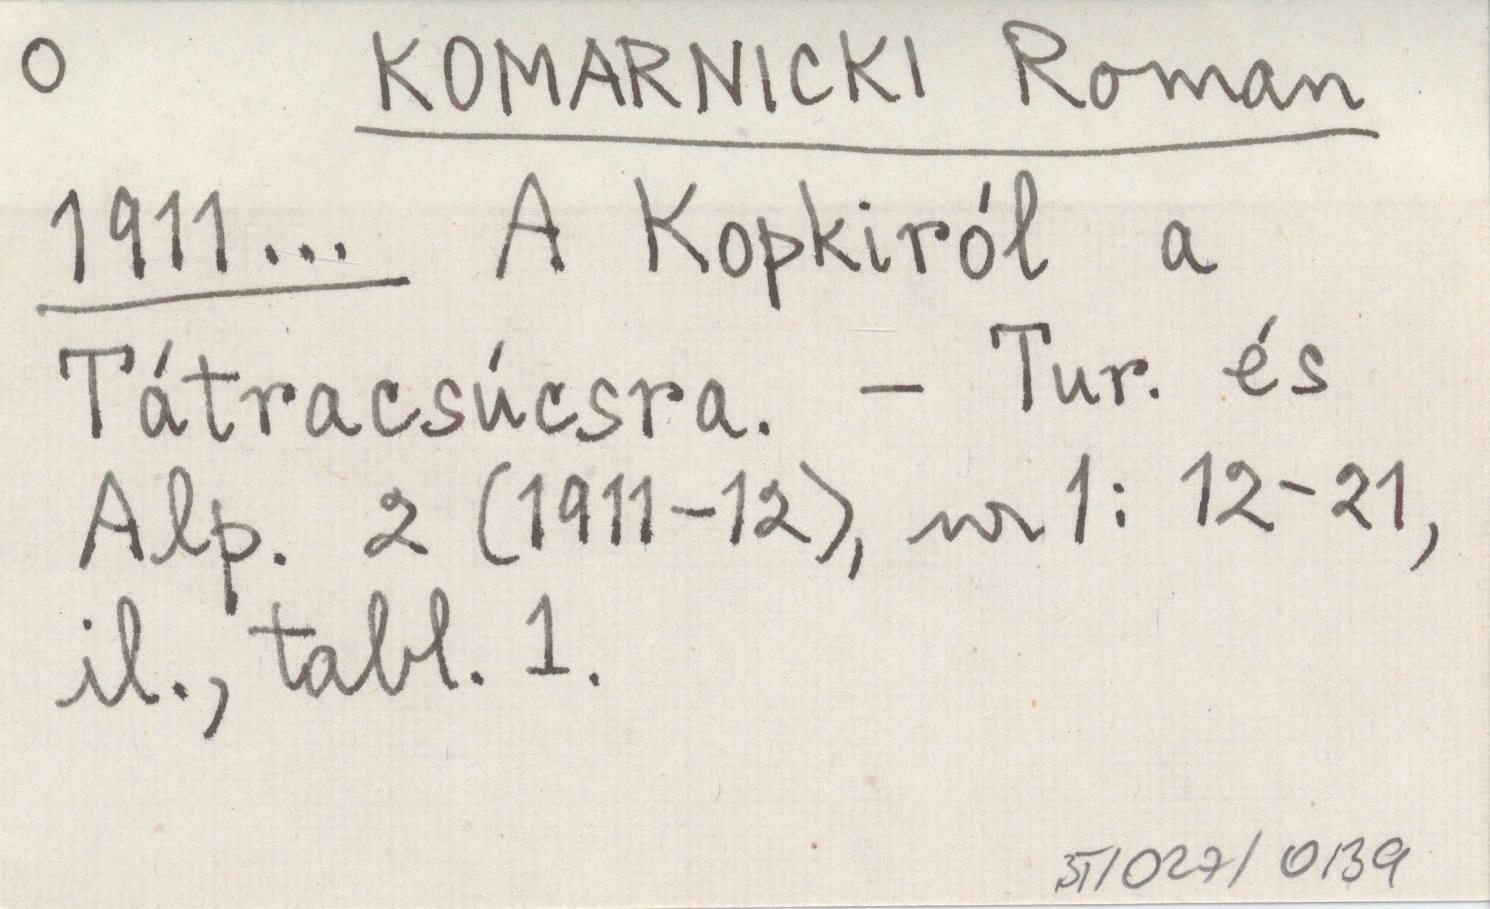 O KOMARNICKI Roman
1911... A Kopkiról a
Tátracsúcsra. – Tur. és
Alp. 2 (1911-12), nr 1: 12-21,
il., tabl. 1.
/027/0139